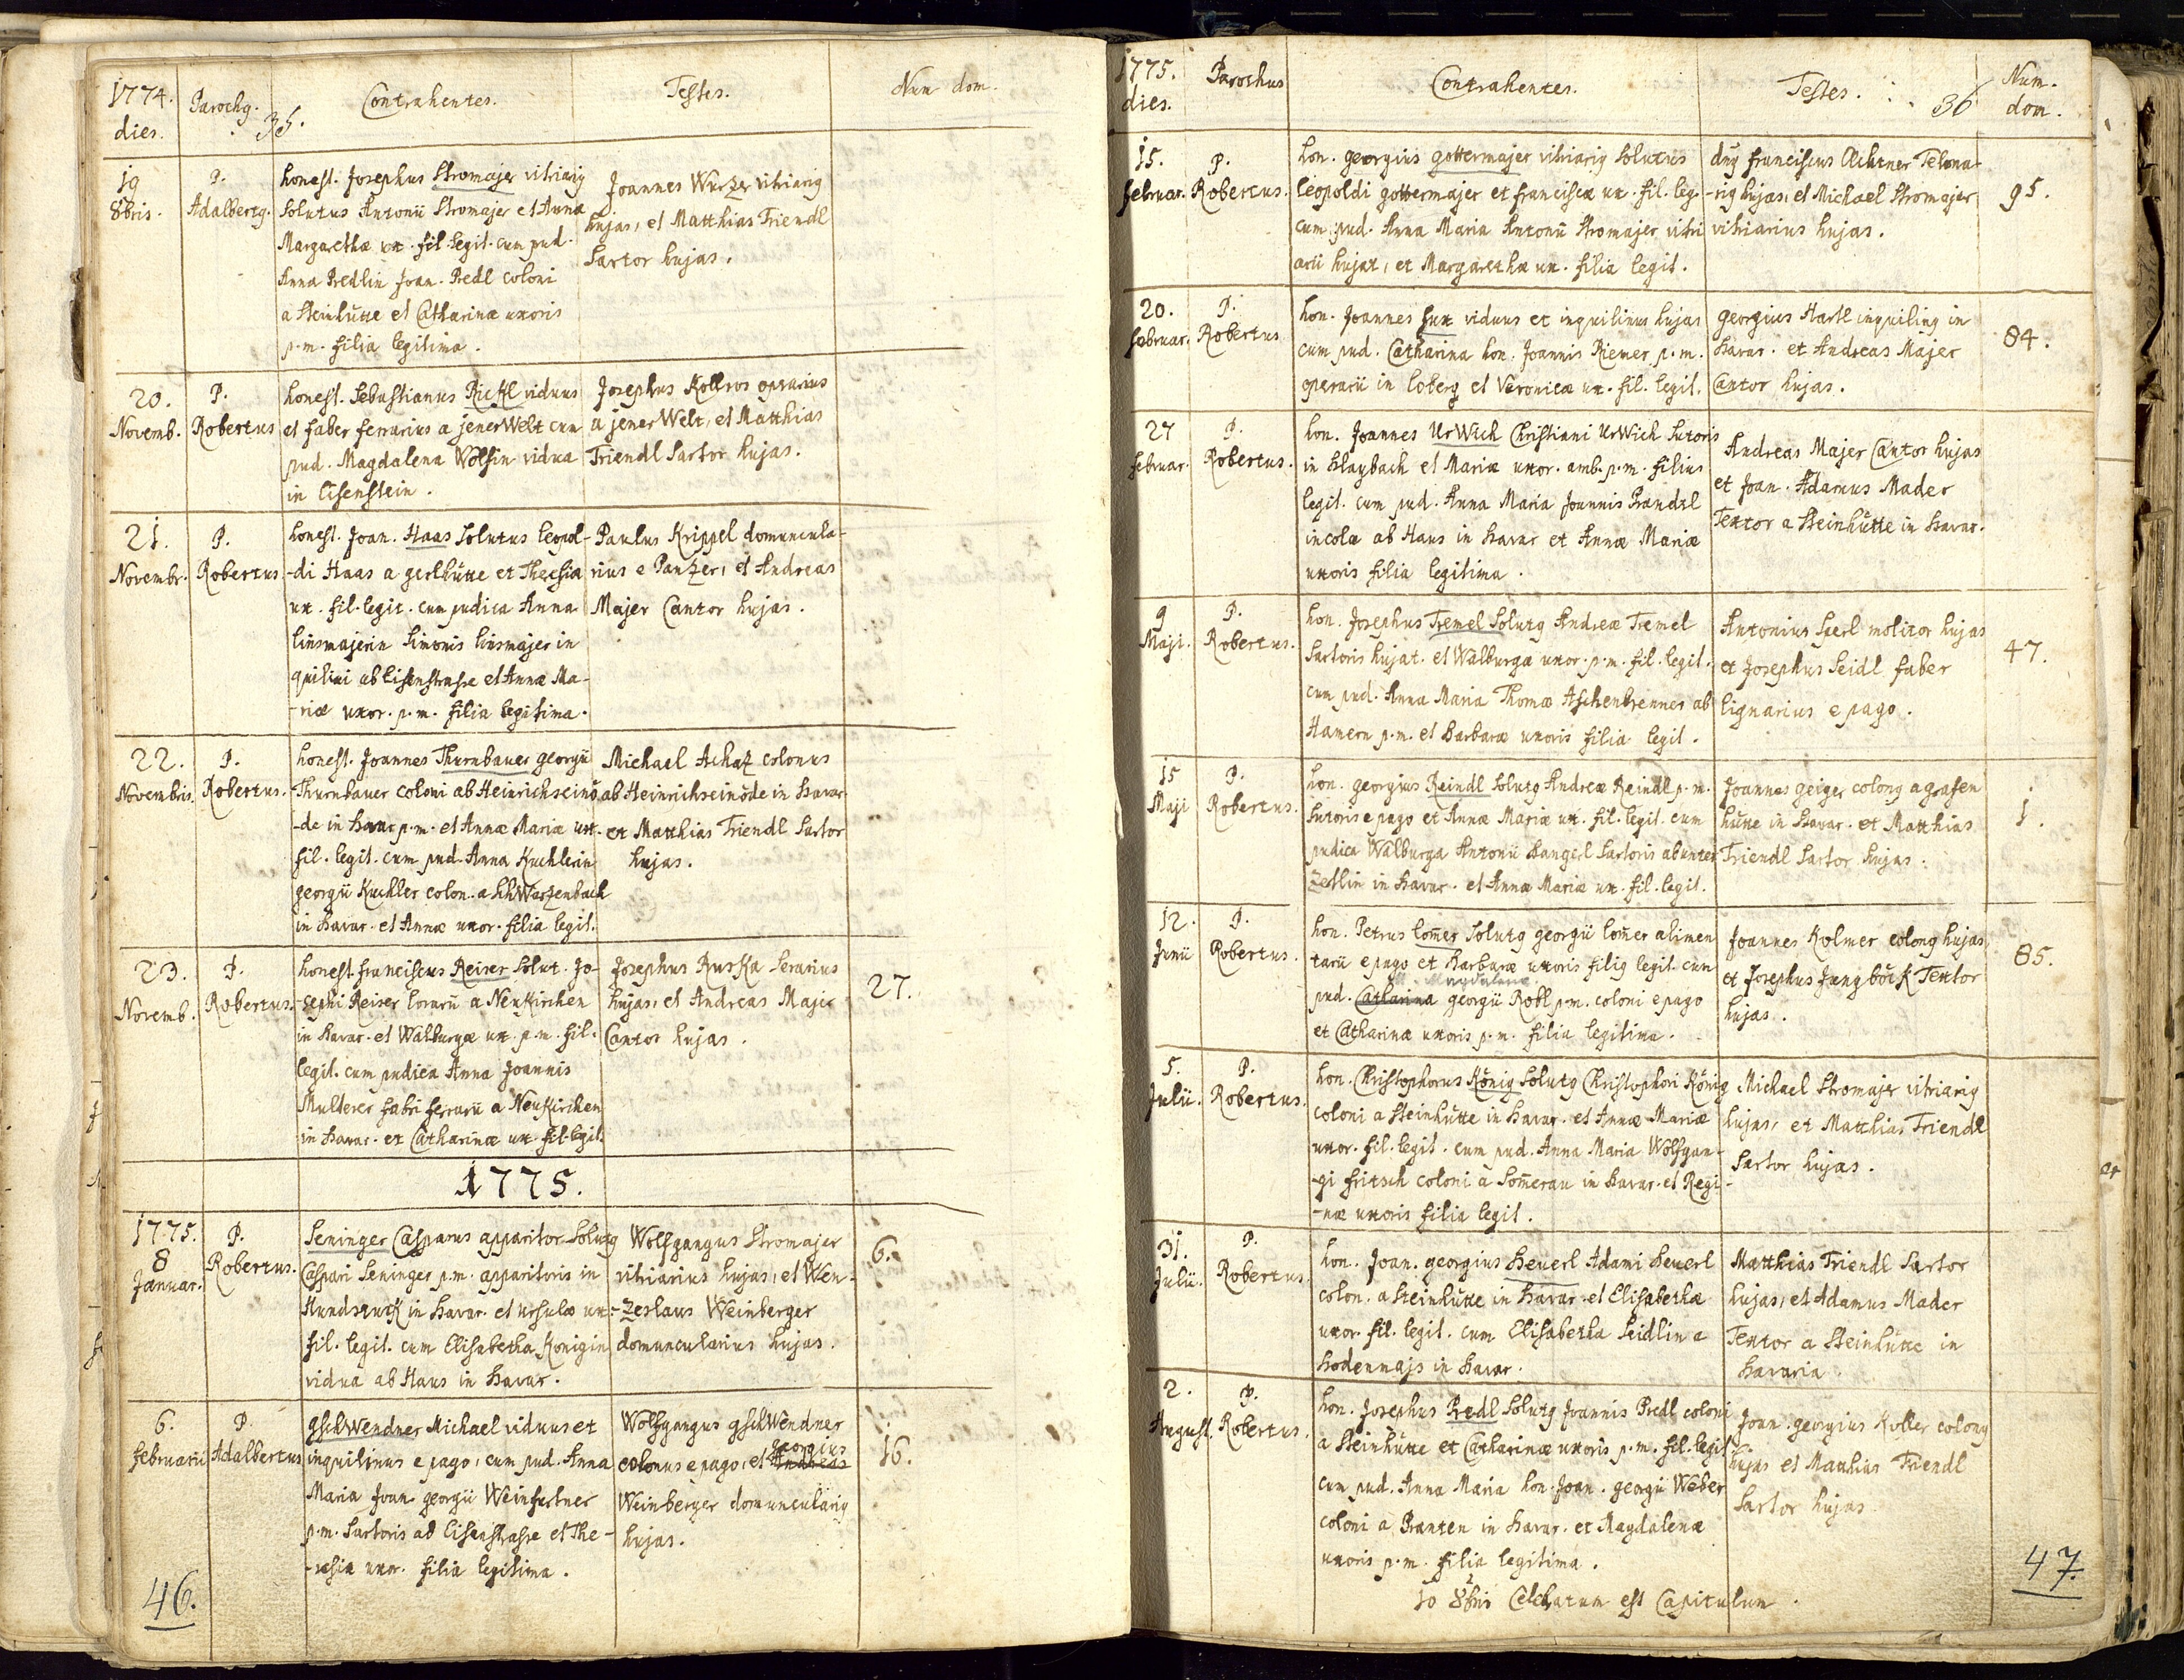 1774.
dies.
Parochg.
35.
Contrahentes.
Testes.
Num dom.
19
8bris.
P.
Adalbertg.
honest. Josephus Stromajer vitriarig
Solutus Antonii Stromajer et Anna
Margarethæ ux. fil. legit. cum pud.
Anna Predlin Joan. Predl coloni
a Steinhütte et Catharinæ uxoris
p.m. filia legitima.
Joannes Wurzer vitriarig
hujas, et Matthias Friendl
Sartor hujas.
20.
Novemb.
P.
Robertus
honest. Sebastianus Rickl viduus
et faber ferrarius a jener Welt cum
pud. Magdalena Wölfin vidua
in Eisenstein.
Josephus Kollros operarius
a jener Welt, et Matthias
Friendl Sartor hujas.
21.
Novembr.
P.
Robertus
honest. Joan. Haas Solutus Leopol-
-di Haas a gerlhütte et Theresia
ux. fil. legit. cum pudica Anna
Linsmajerin Simonis Linsmajer in
quilini ab Eisenstrasse et Annæ Ma-
-riæ uxor. p.m. filia legitima.
Paulus Krippel domuncula-
rius e Panzer, et Andreas
Majer Cantor hujas.
22.
Novembris.
P.
Robertus.
honest. Joannes Thurnbauer georgii
Thurnbauer coloni ab Heinrichseinö
-de in Bavar. p.m. et Annæ Mariæ ux.
fil. legit. cum pud. Anna Kuchlerin
georgii Kuchler colon. a Schwarzenbach
in Bavar. et Annæ uxor. filia legit.
Michael Achaz colonus
ab Heinrichseinöde in Bavar.
et Matthias Friendl Sartor
hujas.
23.
Novemb.
P.
Robertus.
honest. franciscus Reiser Solut. Jo-
-sephi Reiser lorarii a Neukirchen
in Bavar. et Walburgæ ux. p.m. fil.
legit. cum pudica Anna Joannis
Multerer fabri ferrarii a Neukirchen
in Bavar. et Catharinæ ux. fil. legit.
Josephus Ruska Serarius
hujas, et Andreas Majer
Cantor hujas.
27.
1775.
1775.
8
Januar.
P.
Robertus.
Seninger Casparus apparitor Solutg
Caspari Seninger p.m. apparitoris in
Hundsruck in Bavar. et Ursulæ ux.
fil. legit. cum Elisabetha Königin
vidua ab Haus in Bavar.
Wolfgangus Stromajer
vitriarius hujas, et Wen-
-zeslaus Weinberger
domuncularius hujas.
6.
6.
februarii
P.
Adalbertus
gschwendner Michael viduus et
inquilinus e pago, cum pud. Anna
Maria Joan. georgii Weinfurtner
p.m. Sartoris ad Eisenstrasse et The-
-resiæ uxor. filia legitima.
Wolfgangus gschwendner
colonus e pago, et Andreas
Georgius
Weinberger domuncularig
hujas.
16.
46.
1775.
dies.
Parochus
Contrahentes.
Testes.
36
Num.
dom.
15.
februar.
P.
Robertus.
hon. georgius gottermajer vitriarig Solutus
Leopoldi gottermajer et franciscæ ux. fil. leg.
cum pud. Anna Maria Antonii Stromajer vitri
arii hujat, et Margarethæ ux. filia legit.
dng franciscus Achtner Telona-
-rig hujas, et Michael Stromajer
vitriarius hujas.
95.
20.
februar.
P.
Robertus
hon. Joannes fux viduus et inquilinus hujas
cum pud. Catharina hon. Joannis Riemer p.m.
operarii in Loberg et Veronicæ ux. fil. legit.
georgius Hartl inquiling in
Bavar. et Andreas Majer
Cantor hujas.
84.
27
februar.
P.
Robertus.
hon. Joannes Urwich Christiani Urwich Sutoris
in Blaybach et Mariæ uxor. amb. p.m. filius
legit. cum pud. Anna Maria Joannis Prandtl
incolæ ab Haus in Bavar et Annæ Mariæ
uxoris filia legitima.
Andreas Majer Cantor hujas
et Joan. Adamus Mader
Textor a Steinhütte in Bavar.
9
Maji.
P.
Robertus.
hon. Josephus Tremel Solutg Andreæ Tremel
Sartoris hujat. et Walburgæ uxor. p.m. fil. legit.
cum pud. Anna Maria Thomæ Aschenbrenner ab
Hamern p.m. et Barbaræ uxoris filia legit.
Antonius Sperl molitor hujas
et Josephus Seidl faber
lignarius e pago.
47.
15
Maji
P.
Robertus.
hon. georgius Reindl Solutg Andreæ Reindl p.m.
Sutoris e pago et Annæ Mariæ ux. fil. legit. cum
pudica Walburga Antonii Bangerl Sartoris ab unter
Zetlin in Bavar. et Annæ Mariæ ux. fil. legit.
Joannes geiger colong a grafen
hütte in Bavar. et Matthias
Friendl Sartor hujas.
1.
12.
Junii
P.
Robertus.
hon. Petrus Lom̄er Solutg georgii Lom̄er alimen
tarii e pago et Barbaræ uxoris filig legit. cum
Magdalena
pud. Catharina georgii Robl p.m. coloni e pago
et Catharinæ uxoris p.m. filia legitima.
Joannes Kolmer colong hujas
et Josephus Jungböck Textor
hujas.
85.
5.
Julii.
P.
Robertus.
hon. Christophorus König Solutg Christophori König
coloni a Steinhütte in Bavar. et Annæ Mariæ
uxor. fil. legit. cum pud. Anna Maria Wolfgan-
-gi fritsch coloni à Som̄erau in Bavar. et Regi-
-næ uxoris filia legit.
Michael Stromajer vitriarig
hujas, et Matthias Friendl
Sartor hujas.
31.
Julii.
P.
Robertus
hon. Joan. georgius Beuerl Adami Beuerl
colon. a Steinhütte in Bavar. et Elisabethæ
uxor. fil. legit. cum Elisabetha Seidlin a
Bodenmajs in Bavar.
Matthias Friendl Sartor
hujas, et Adamus Mader
Textor a Steinhütte in
Bavaria
2.
August.
P.
Robertus.
hon. Josephus Predl Solutg Joannis Predl coloni
a Steinhütte et Catharinæ uxoris p.m. fil. legit.
cum pud. Anna Maria hon. Joan. georgii Weber
coloni a Pranten in Bavar. et Magdalenæ
uxoris p.m. filia legitima.
Joan. georgius Koller colong
hujas et Matthias Friendl
Sartor hujas.
10 8bris Celebratum est Capitulum.
47.